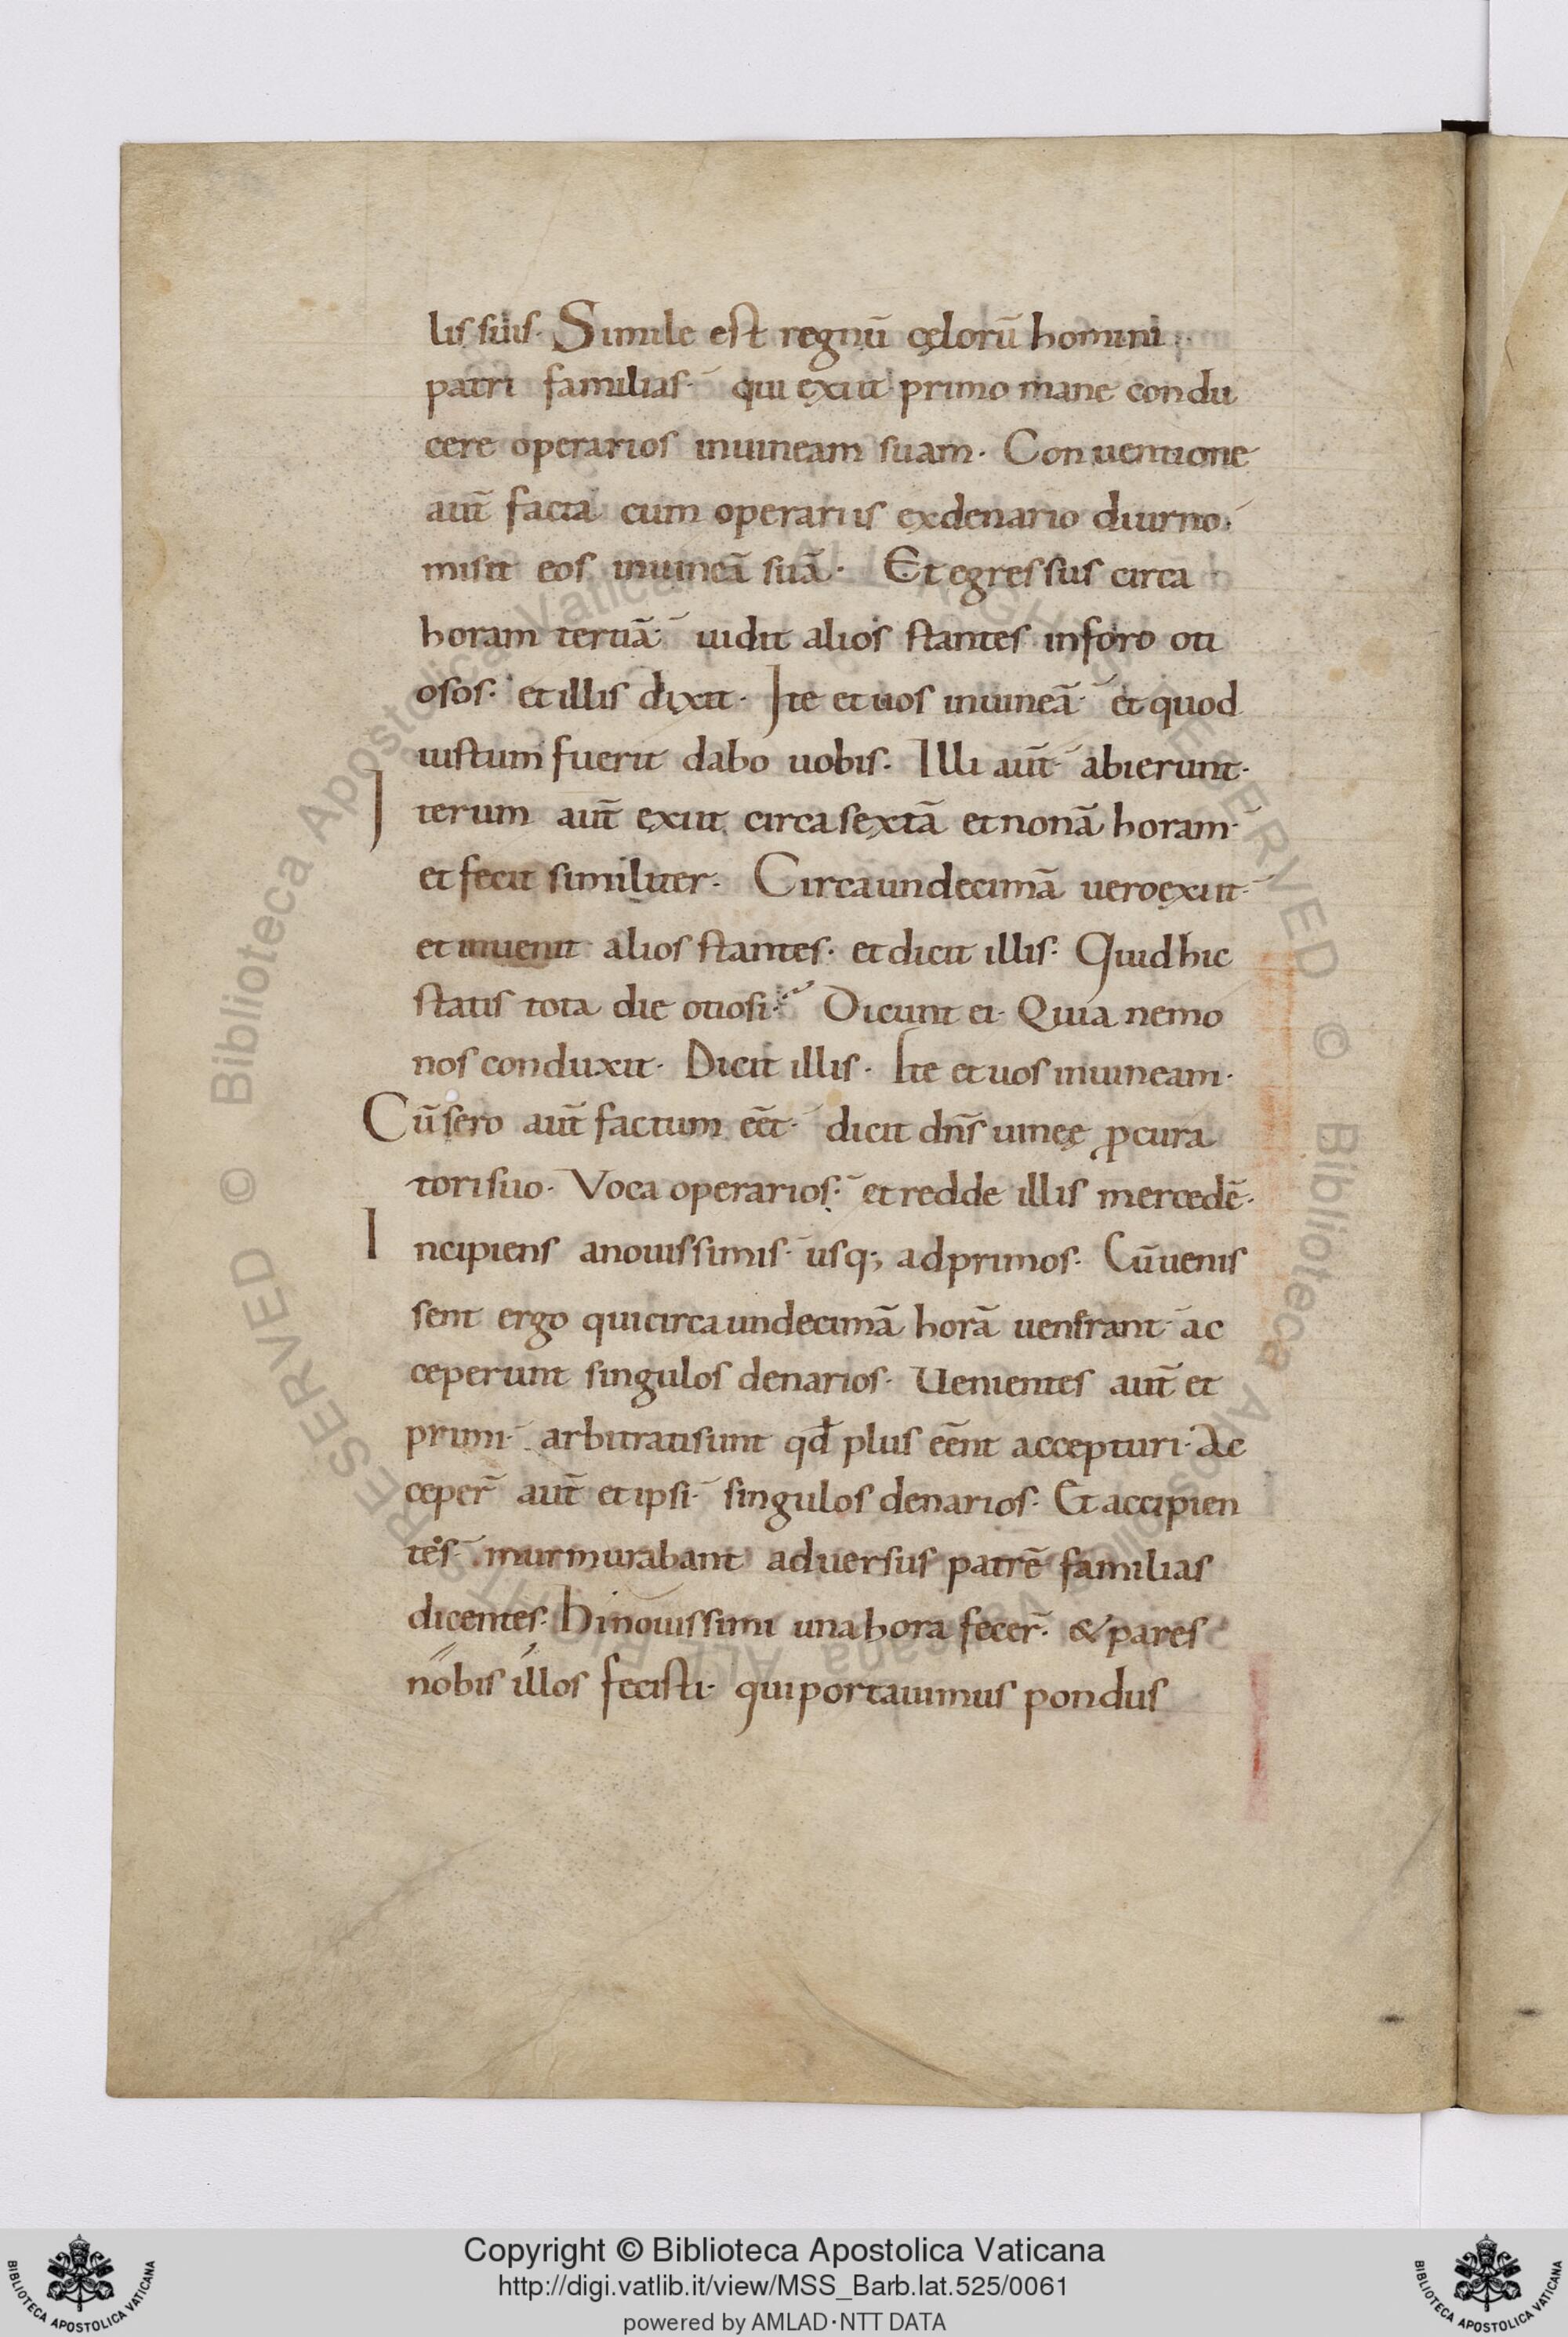 lis suis. Simile est regnū cęlorū homini
patri familias. qui exiit primo mane condu
cere operarios inuineam suam. Conuentione
aut̄ facta cum operariis exdenario diurno.
misit eos inuineā suā. Et egressus circa
horam tertiā. uidit alios stantes inforo oti
osos. et illis dixit. Ite et uos inuineā. et quod
iustum fuerit dabo uobis. Illi aut̄ abierunt.
Iterum aut̄ exiit circa sextā et nonā horam.
et fecit similiter. Circa undecimā uero exiit.
et inuenit alios stantes. et dicit illis. Quid hic
statis tota die otiosi. Dicunt ei. Quia nemo
nos conduxit. Dicit illis. Ite et uos inuineam.
Cū sero aut̄ factum eēt. dicit dn̄s uineę ꝓcura
tori suo. Voca operarios. et redde illis mercedē.
Incipiens anouissimis. usq; ad primos. Cū uenis
sent ergo qui circa undecimā horā uenerant. ac
ceperunt singulos denarios. Uenientes aut̄ et
primi. arbitrati sunt qđ plus eēnt accepturi. Ac
ceper̄ aut̄ et ipsi. singulos denarios. Et accipien
tes. murmurabant aduersus patrē familias
dicentes. Hi nouissimi una hora fecer̄. & pares
nobis illos fecisti. qui portauimus pondus
Copyright © Biblioteca Apostolica Vaticana
http://digi.vatlib.it/view/MSS_Barb.lat.525/0061
powered by AMLAD·NTT DATA